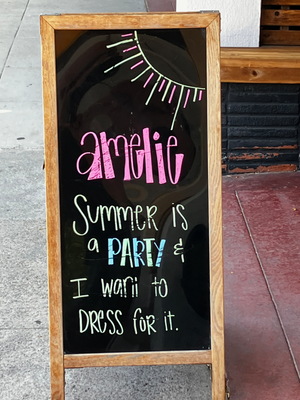 amelie
SUMMER is
a PARTY &
I want to
DRESS for it.